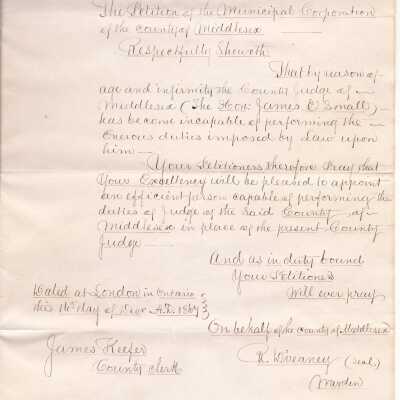 The Petition of the Municipal Corporation
of the county of Middlesex
Respectfully Sheweth
That by reason of
age and infirmity the County Judge of
Middlesex (The Hon: James E Small)
has become incapable of performing the
onerous duties imposed by Law upon
him
Your Petitioners therefore Pray that
Your Excellency will be pleased to appoint
an efficient person capable of performing the
duties of Judge of the said County of
Middlesex in place of the present County
Judge
And as in duty bound
Your Petitioners
Will ever pray
Dated at London in Ontario
this day of A.D. 1867
On behalf of the county of Middlesex
James Keefer
County clerk
R. (Seal)
Warden